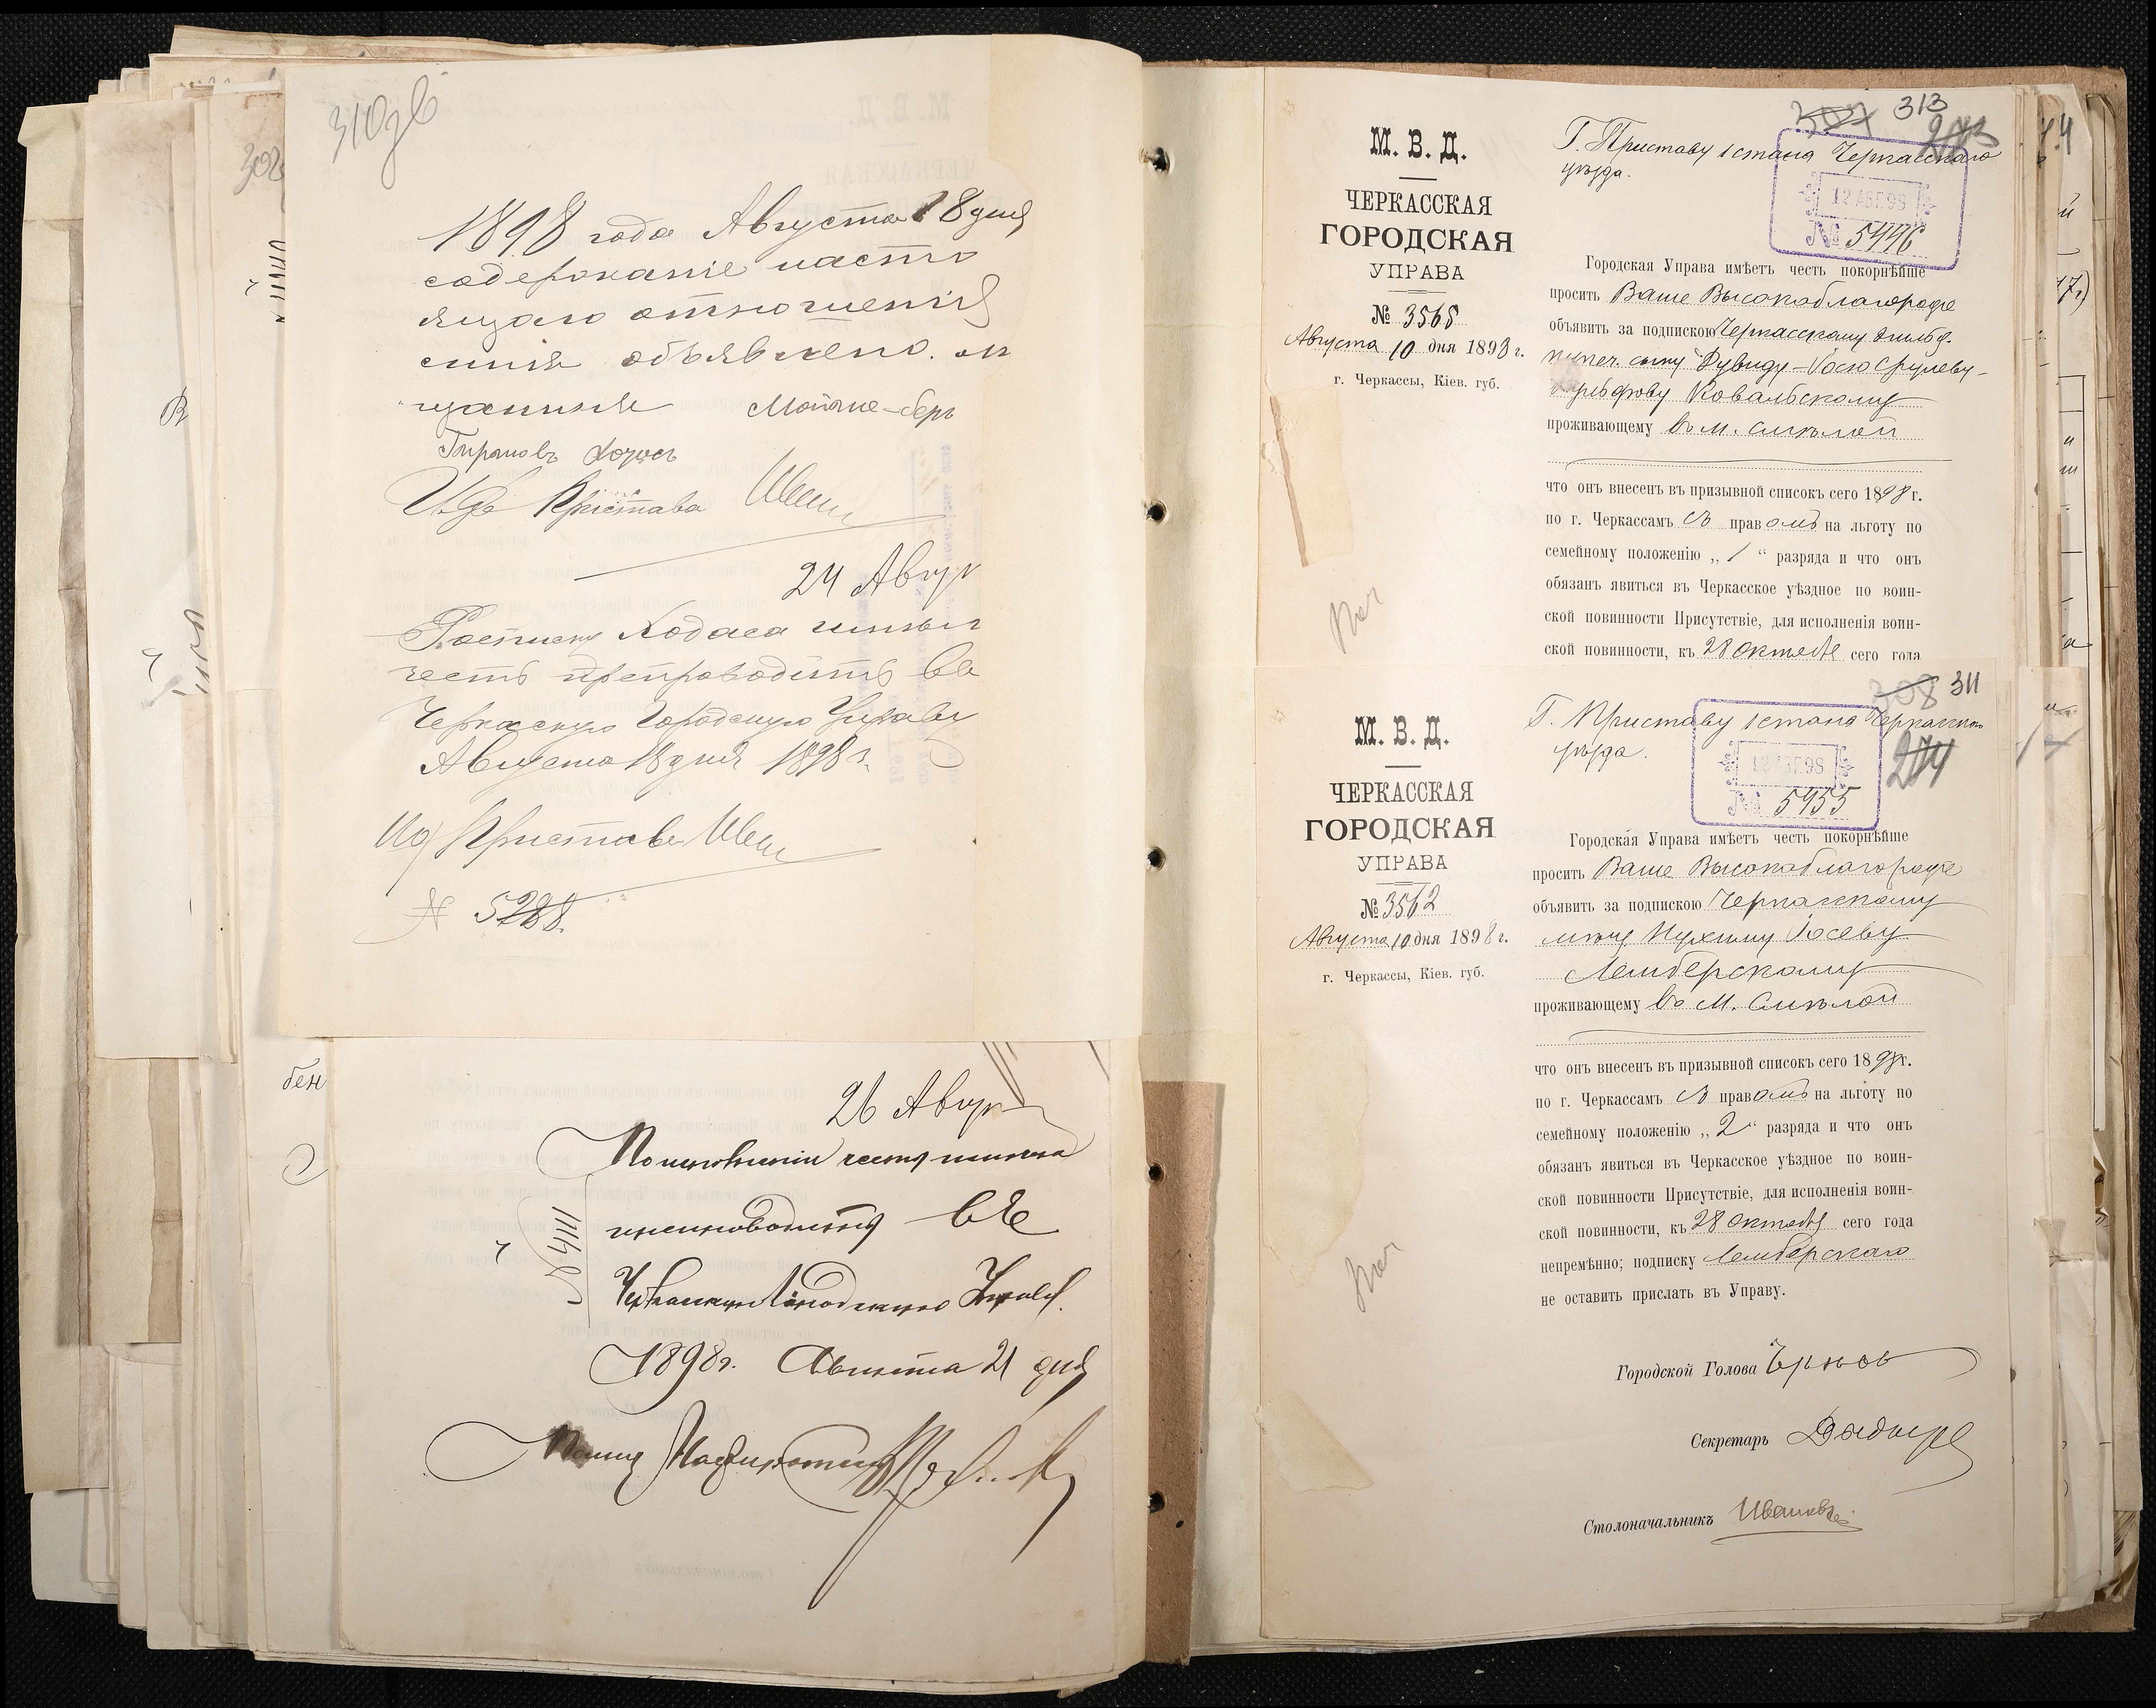 310 об
1898 года Августа 18 дня
содержаніе насто
ящаго отношенія
мнѣ объявлено. мѣ
щанинъ Мошко-Беръ
Ходосъ
И. д. Пристава
24 Авгус
Росписку Ходоса имѣю
честь препроводить въ
Черкасскую Городскую Управу
Августа 18 дня 1898 г.
Ид Пристава
№ 5288.
26 Авгус
По исполненіи честь имѣю
препроводить въ
Черкасскую Городскую Управу.
1898 г. Августа 21 дня
№ 4111
бен
307 313
273
М. В. Д.
ЧЕРКАССКАЯ
ГОРОДСКАЯ
УПРАВА
№ 3565
Августа 10 дня 1898 г.
г. Черкассы, Кіев. губ.
Г. Приставу 1 стана Черкасскаго
уѣзда.
12 АВГ. 98
№ 5446
Городская Управа имѣетъ честь покорнѣйше
просить Ваше Высокоблагородіе
объявить за подпискою Черкасскому
купеч. сыну
Ковальскому
проживающему въ м. Смѣлой
что онъ внесенъ въ призывной списокъ сего 1898 г.
по г. Черкассамъ съ правомъ на льготу по
семейному положенію „ 1 “ разряда и что онъ
обязанъ явиться въ Черкасское уѣздное по воин-
ской повинности Присутствіе, для исполненія воин-
ской повинности, къ 28 Октября сего года
308 311
274
М. В. Д.
ЧЕРКАССКАЯ
ГОРОДСКАЯ
УПРАВА
№ 3562
Августа 10 дня 1898 г.
г. Черкассы, Кіев. губ.
Г. Приставу 1 стана Черкасскаго
уѣзда.
12 АВГ. 98
№ 5455
Городская Управа имѣетъ честь покорнѣйше
просить Ваше Высокоблагородіе
объявить за подпискою Черкасскому
мѣщ. Нухиму Іосеву
Лемберскому
проживающему въ м. Смѣлой
что онъ внесенъ въ призывной списокъ сего 1898 г.
по г. Черкассамъ съ правомъ на льготу по
семейному положенію „ 2 “ разряда и что онъ
обязанъ явиться въ Черкасское уѣздное по воин-
ской повинности Присутствіе, для исполненія воин-
ской повинности, къ 28 Октября сего года
непремѣнно; подписку Лемберскаго
не оставить прислать въ Управу.
Городской Голова
Секретарь
Столоначальникъ Ивановъ